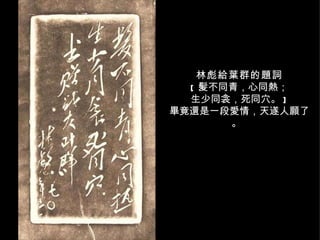 髮不同青心同热
生少同衾死同穴
林彪給葉群的題詞
﹝ 髮不同青，心同熱；
生少同衾，死同穴。﹞
畢竟還是一段愛情，天遂人願了
。